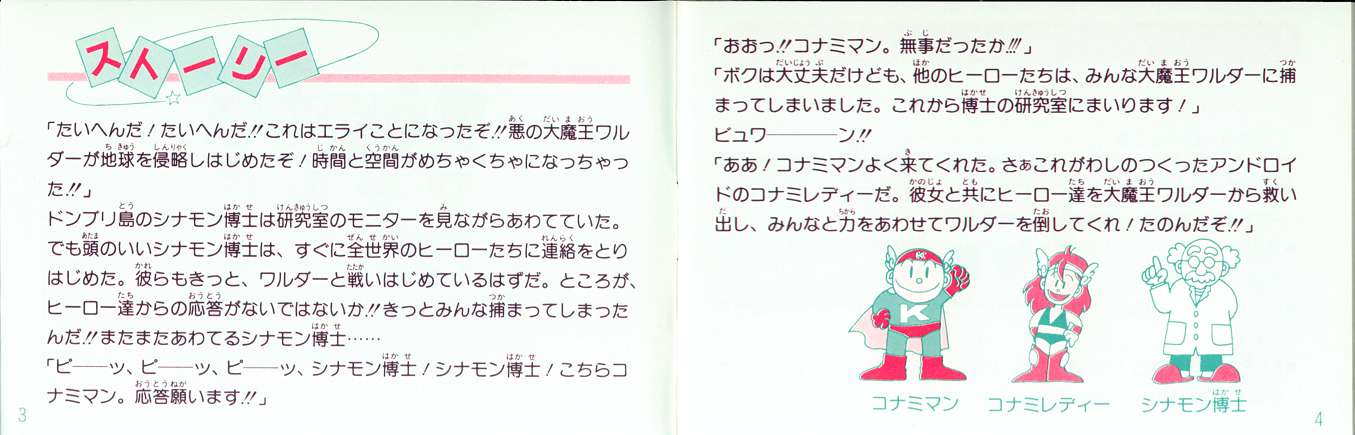 ストーリー
「たいへんだ!たいへんだ!!これはエライことになったぞ!!悪の大魔王ワル
ダーが地球を侵略しはじめたぞ!時間と空間がめちゃくちゃになっちゃっ
た!!」
ドンブリ島のシナモン博士は研究室のモニターを見ながらあわてていた。
でも頭のいいシナモン博士は、すぐに全世界のヒーローたちに連絡をとり
はじめた。彼らもきっと、ワルダーと戦いはじめているはずだ。ところが、
ヒーロー達からの応答がないではないか!!きっとみんな捕まってしまった
んだ!!またまたあわてるシナモン博士……
「ピ――ッ、ピ――ッ、ピ――ッ、シナモン博士!シナモン博士!こちらコ
ナミマン。応答願います!!」
3
「おおっ!!コナミマン。無事だったか!!!」
「ボクは大丈夫だけども、他のヒーローたちは、みんな大魔王ワルダーに捕
まってしまいました。これから博士の研究室にまいります!」
ビュワ――――ン!!
「ああ!コナミマンよく来てくれた。さぁこれがわしのつくったアンドロイ
ドのコナミレディーだ。彼女と共にヒーロー達を大魔王ワルダーから救い
出し、みんなと力をあわせてワルダーを倒してくれ!たのんだぞ!!」
K
K
コナミマン
コナミレディー
シナモン博士
4